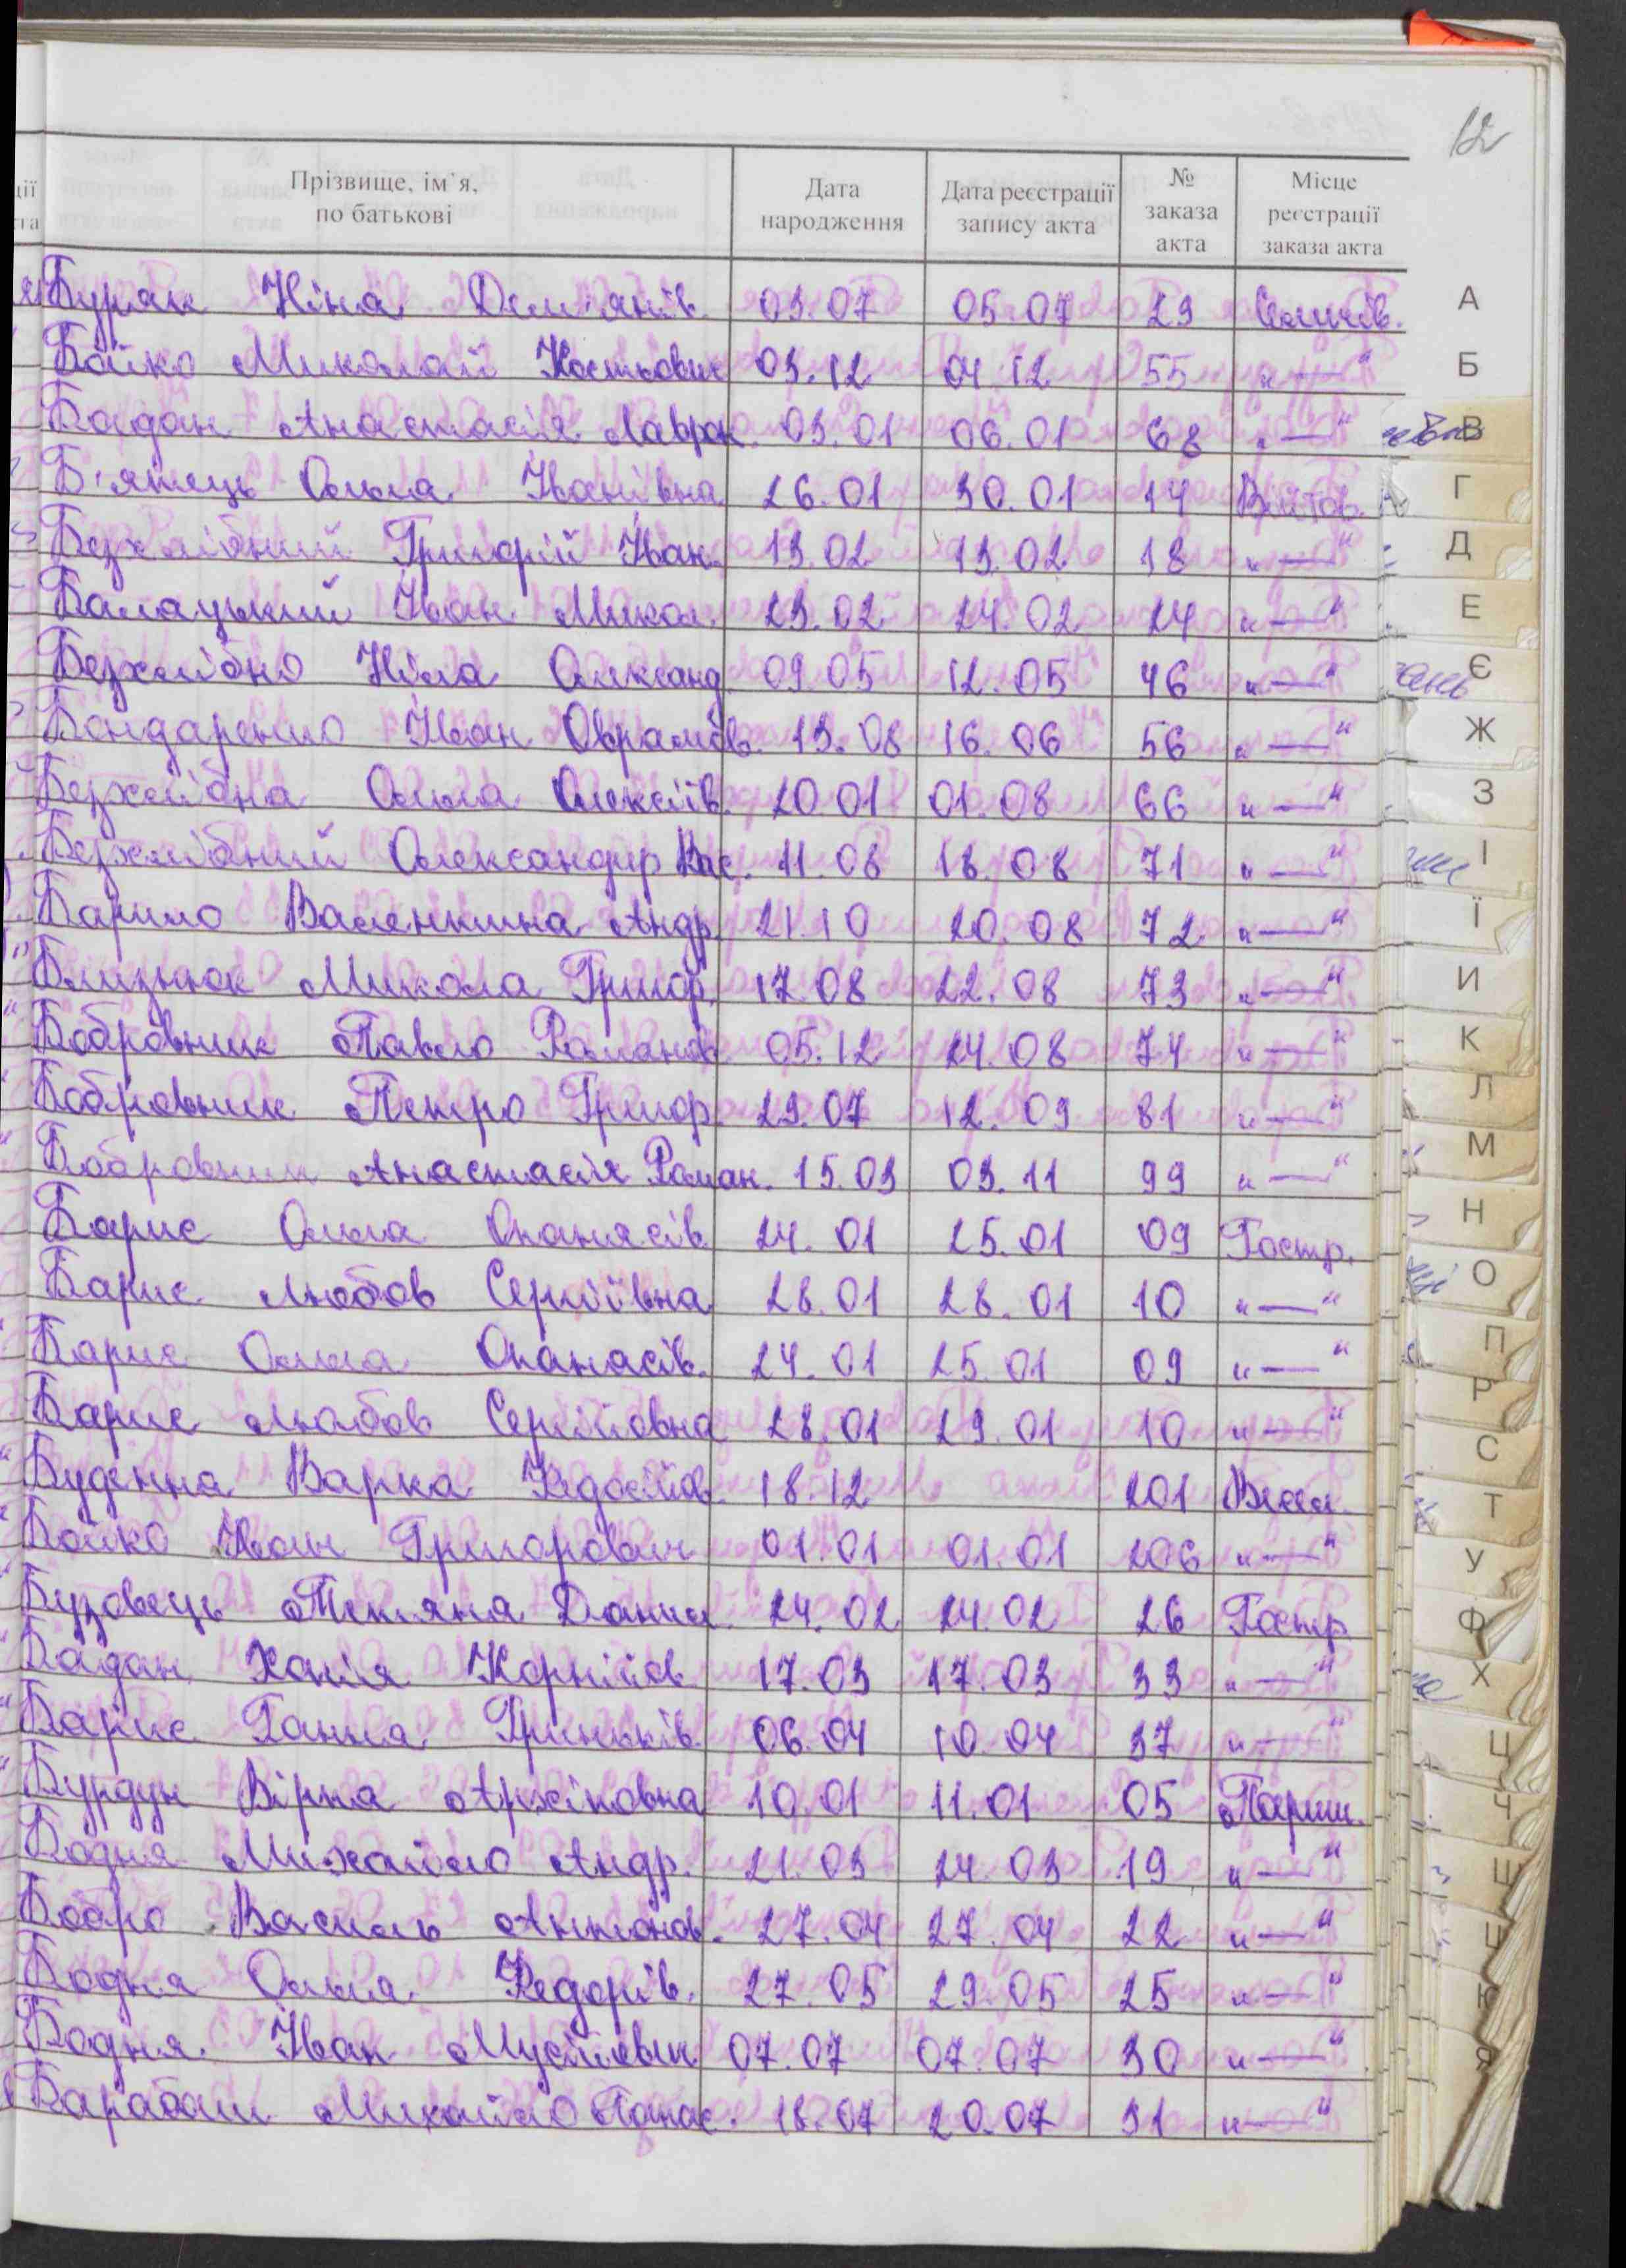 12
Прізвище, ім'я, по батькові Дата народження Дата реєстрації запису акта № заказа акта Місце реєстрації заказа акта
Буряк Ніна Дем'янів. 03.07 05.07 29
Бойко Миколай Костьович 03.12 04.12 55 "—"
Бадан Анастасія Лаврен. 03.01 06.01 68 "—"
Б'янець Ольга Іванівна 26.01 30.01 14 Війтов.
Безхлібний Григорій Іван. 13.02 13.02 18 "—"
Балацький Іван Микол. 23.02 24.02 24 "—"
Безхлібно Ніла Олександ 09.05 12.05 46 "—"
Бондаренко Іван Оврамов. 13.08 16.06 56 "—"
Безхлібна Ольга Олексіїв. 20.01 01.08 66 "—"
Безхлібний Олександр Вас. 11.08 18.08 71 "—"
Барило Валентина Андр. 21.10 20.08 72 "—"
Близнюк Микола Григор. 17.08 22.08 73 "—"
Бобровник Павло Романов. 05.12 24.08 74 "—"
Бобровник Петро Григор. 29.07 12.09 81 "—"
Бобровник Анастасія Роман. 15.03 03.11 99 "—"
Барис Ольга Опанасів. 24.01 25.01 09 Гостр.
Барис Любов Сергіївна 28.01 28.01 10 "—"
Барис Ольга Опанасів. 24.01 25.01 09 "—"
Барис Любов Сергійовна 28.01 29.01 10 "—"
Буденна Варка Федосіїв. 18.12 201
Бойко Іван Григорович 01.01 01.01 206 "—"
Бузовець Тетяна Данил. 24.02 24.02 26 Гостр
Бадан Ханія Корніїв 17.03 17.03 33 "—"
Барис Ганна Гриньків. 06.04 10.04 37 "—"
Бурдун Вірка Архіповна 10.01 11.01 05 Париш.
Бодня Михайло Андр. 21.03 24.03 19 "—"
Бобро Василь Антонов. 27.04 27.04 22 "—"
Бодня Ольга Федорів. 27.05 29.05 25 "—"
Бодня Іван Мусійович 07.07 07.07 30 "—"
Барабаш Михайло Панас. 18.07 20.07 31 "—"
А
Б
В
Г
Д
Е
Є
Ж
З
І
Ї
И
К
Л
М
Н
О
П
Р
С
Т
У
Ф
Х
Ц
Ч
Ш
Щ
Ю
Я